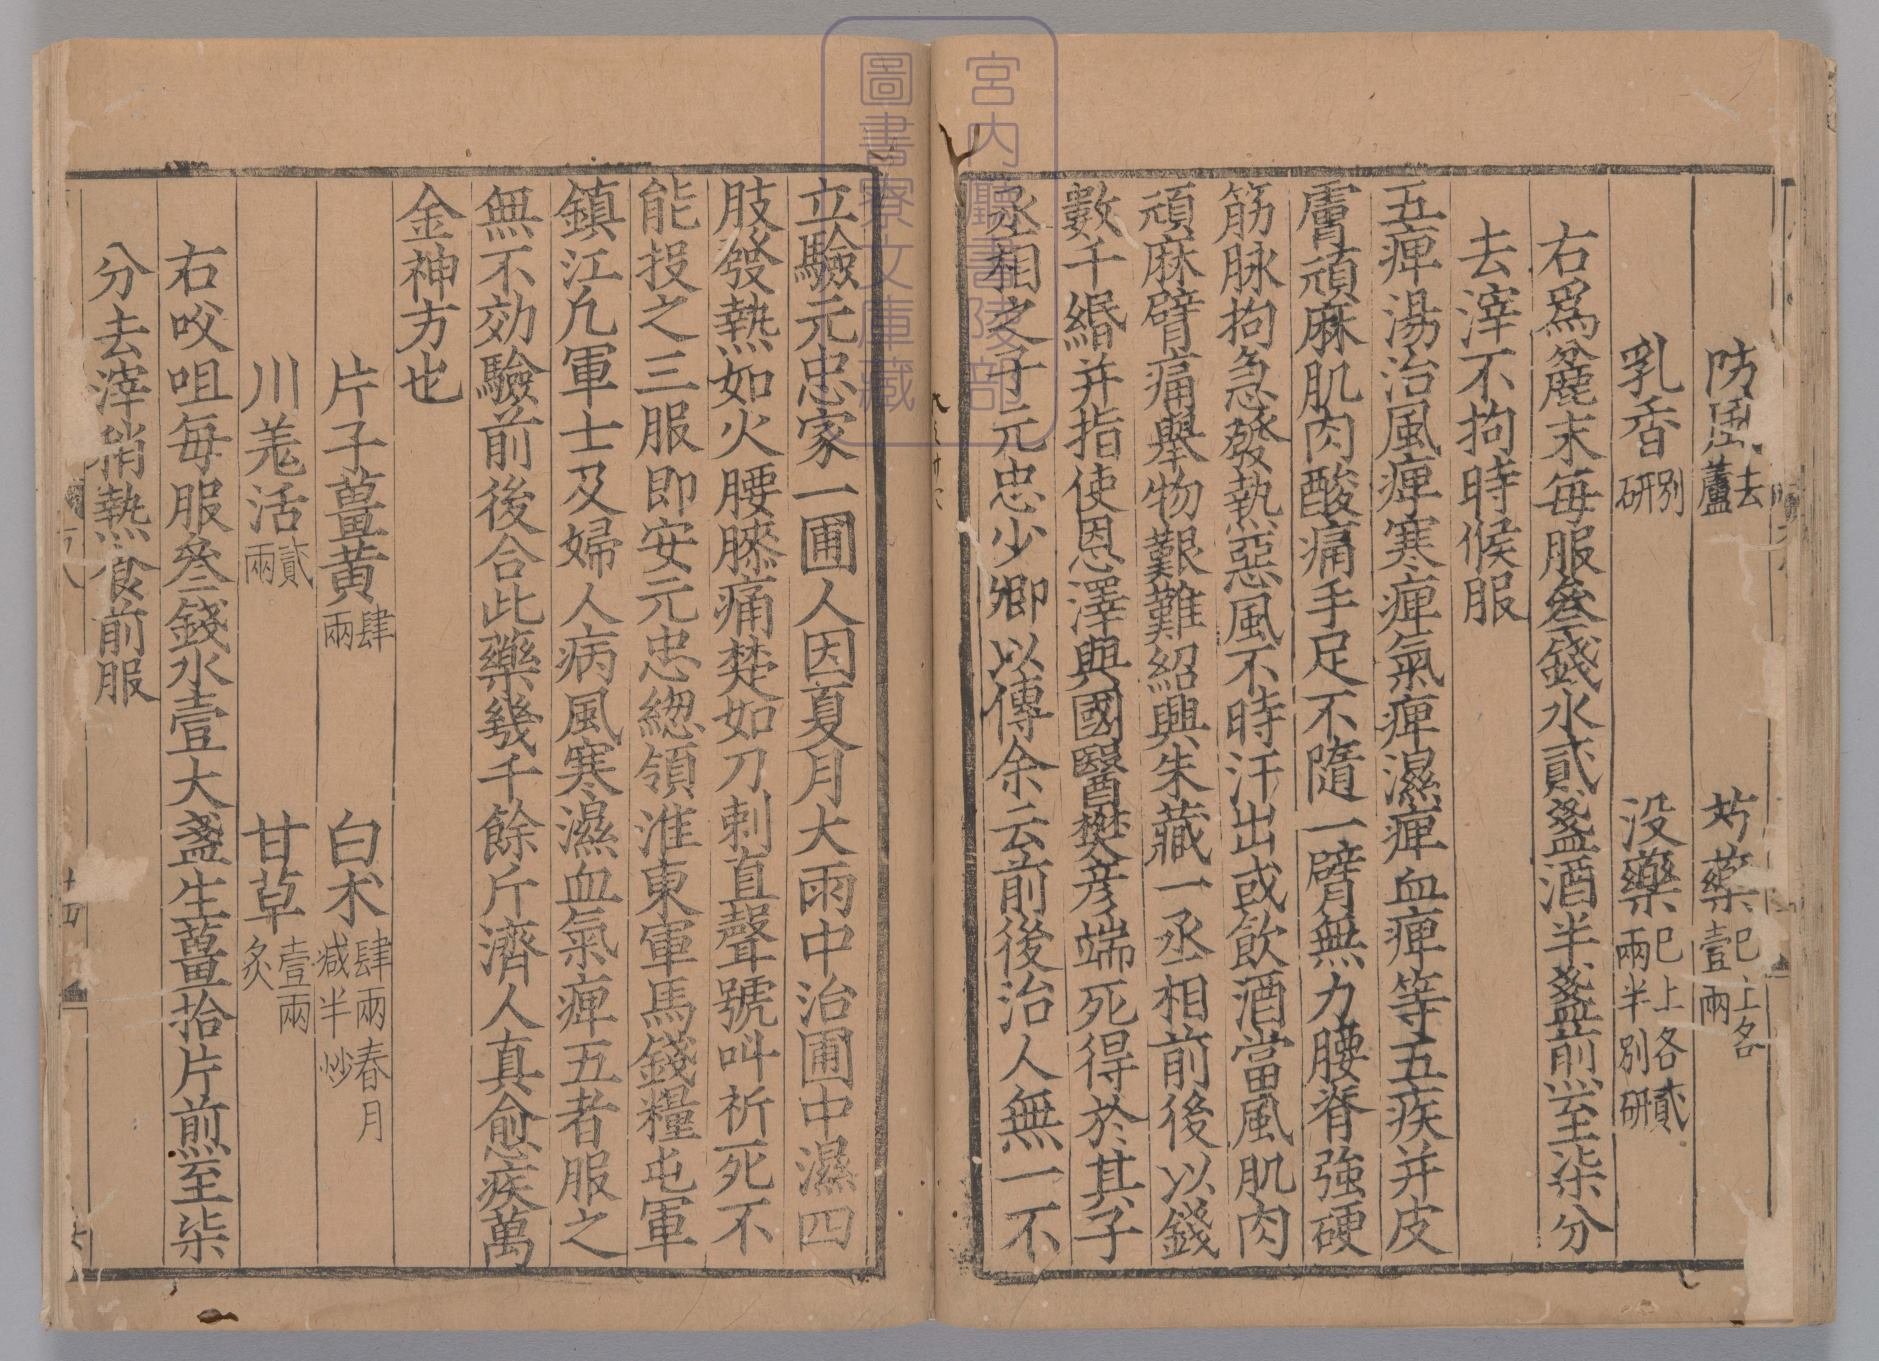 防風去蘆　芍藥已上各壹兩
乳香別研　没藥已上各貳兩半別研
右爲麄末每服叄錢水貳盞酒半盞煎至柒分
去滓不拘時候服
五痺湯治風痺寒痺氣痺濕痺血痺等五疾并皮
膚頑麻肌肉酸痛手足不隨一臂無力腰脊強硬
筋脉拘急發熱惡風不時汗出或飲酒當風肌肉
頑麻臂痛舉物艱難紹興朱藏一丞相前後以錢
數千緡并指使恩澤與國醫樊彦端死得於其子
丞相之子元忠少卿以傳余云前後治人無一不
立驗元忠家一圃人因夏月大雨中治圃中濕四
肢發熱如火腰膝痛楚如刀刺直聲號叫祈死不
能投之三服即安元忠緫領淮東軍馬錢糧屯軍
鎮江凡軍士及婦人病風寒濕血氣痺五者服之
無不効驗前後合此藥幾千餘斤濟人真愈疾萬
金神方也
片子薑黃肆兩　白术肆兩春月減半炒
川羗活貳兩　甘草壹兩炙
右㕮咀每服叄錢水壹大盞生薑拾片煎至柒
分去滓稍熱食前服
十四
宮内廳書陵部
圖書寮文庫藏